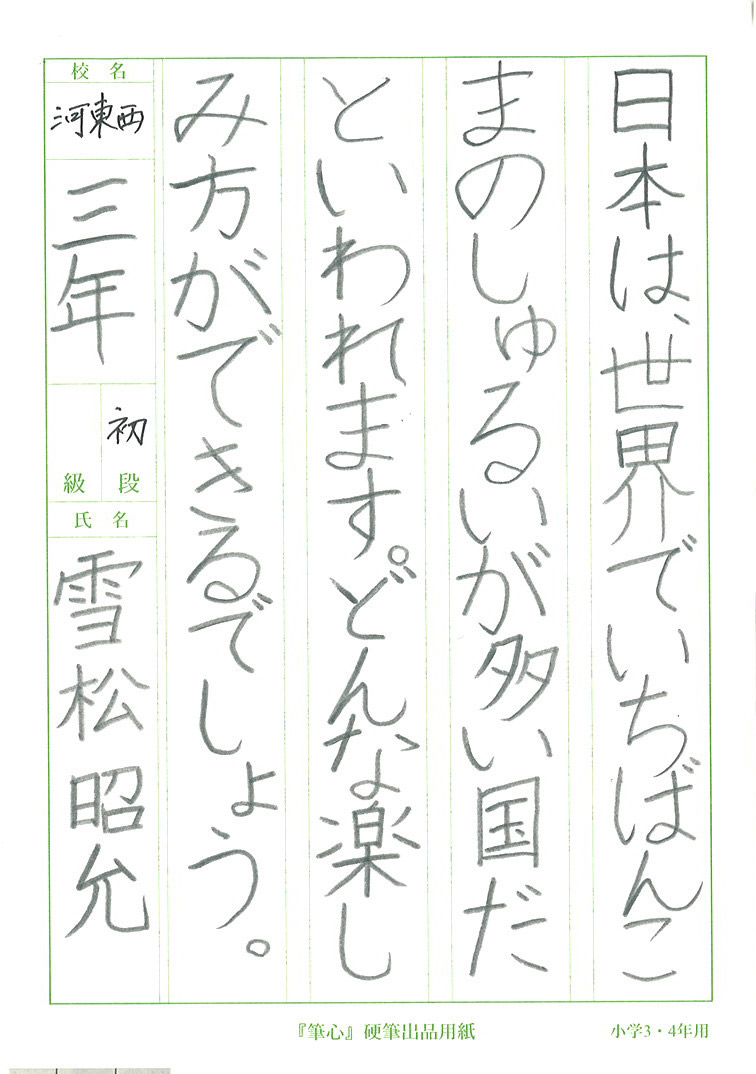 日本は、世界でいちばんこ
まのしゅるいが多い国だ
といわれます。どんな楽し
み方ができるでしょう。
校名
河東西
三年
初
段
級
氏名
雪松昭允
『筆心』硬筆出品用紙
小学3・4年用